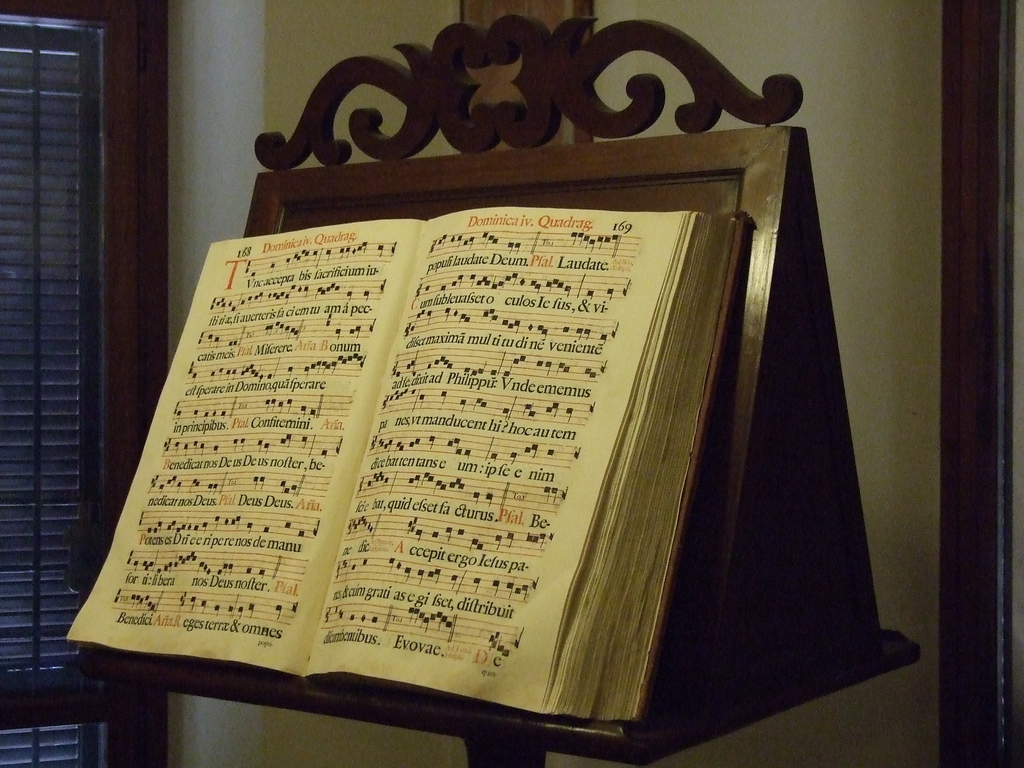 168
Dominica iv. Quadrag.
Tunc accepta bis sacrificium iu-
stitiæ, si auerteris faciem tuam à pec-
catis meis. Psal. Miserere. Aña Bonum
est sperare in Domino, quã sperare
in principibus. Psal. Confitemini. Aña.
Benedicat nos Deus Deus noster, be-
nedicat nos Deus. Psal. Deus Deus. Aña.
Potens es Dñe eripere nos de manu
forti: libera nos Deus noster. Psal.
Benedici. Aña. Reges terræ & omnes
popu-
Dominica iv. Quadrag. 169
populi laudate Deum. Psal. Laudate.
Cum subleuasset oculos Iesus, & vi-
disset maximã multitudinẽ venientẽ
ad se, dixit ad Philippũ: Vnde ememus
panes, vt manducent hi? hoc autem
dicebat tentans eum: ipse enim
sciebat, quid esset facturus. Psal. Be-
nedic. Accepit ergo Iesus pa-
nes, & cùm gratias egisset, distribuit
discumbentibus. Evovae. De
quin-